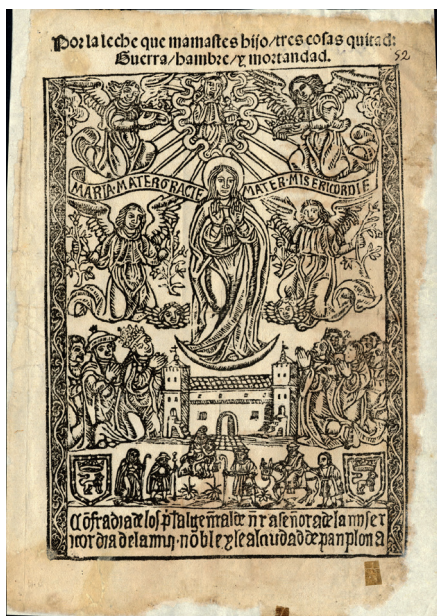 Por la leche que mamastes hijo/tres cosas quitad:
Guerra/hambre/y mortandad.
52
MARIA·MATER GRACIE MATER·MISERICORDIE
de los de nra señora de la miser
icordia de la muy noble y leal ciudad de panplona